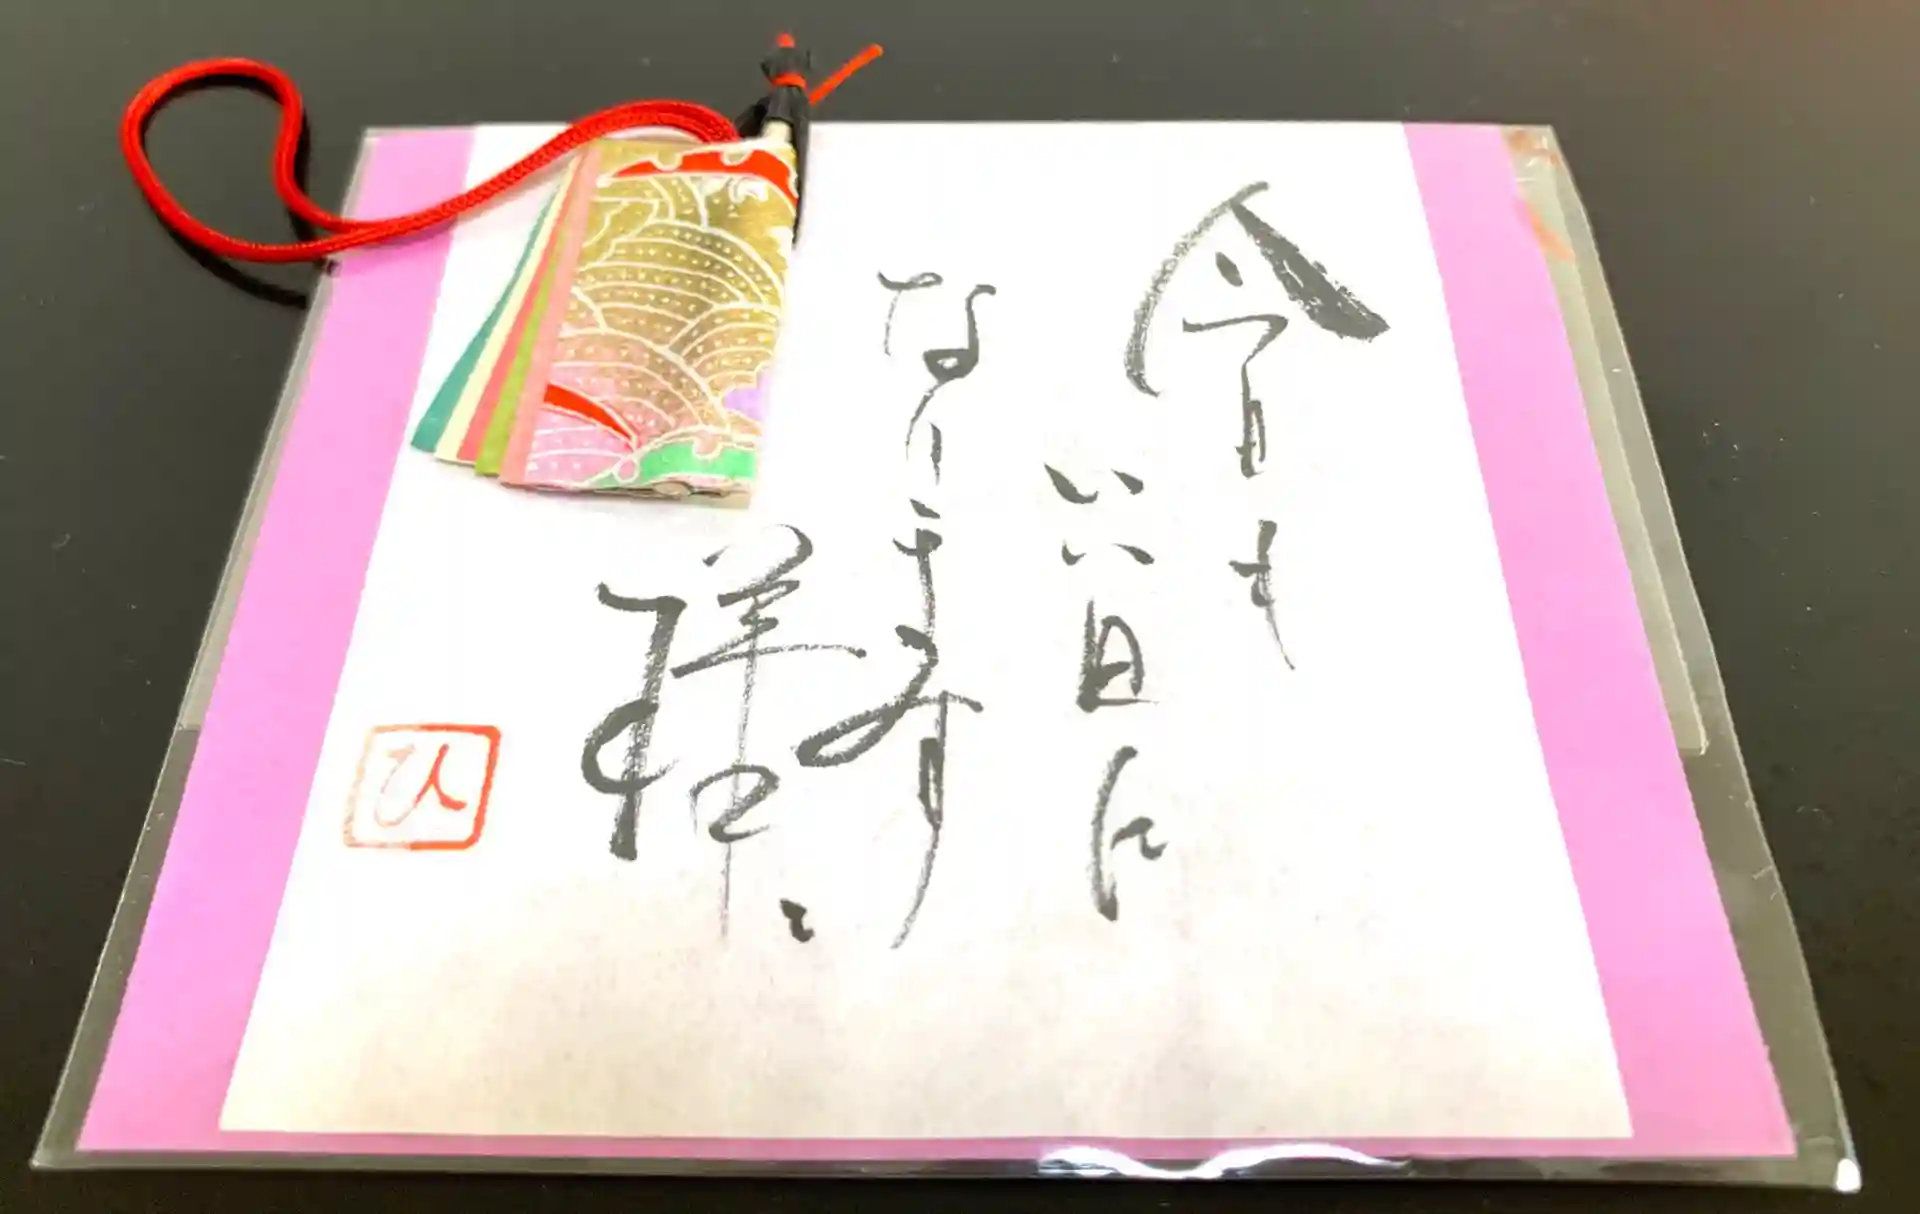 今日も
いい日に
なります
様に
ひ